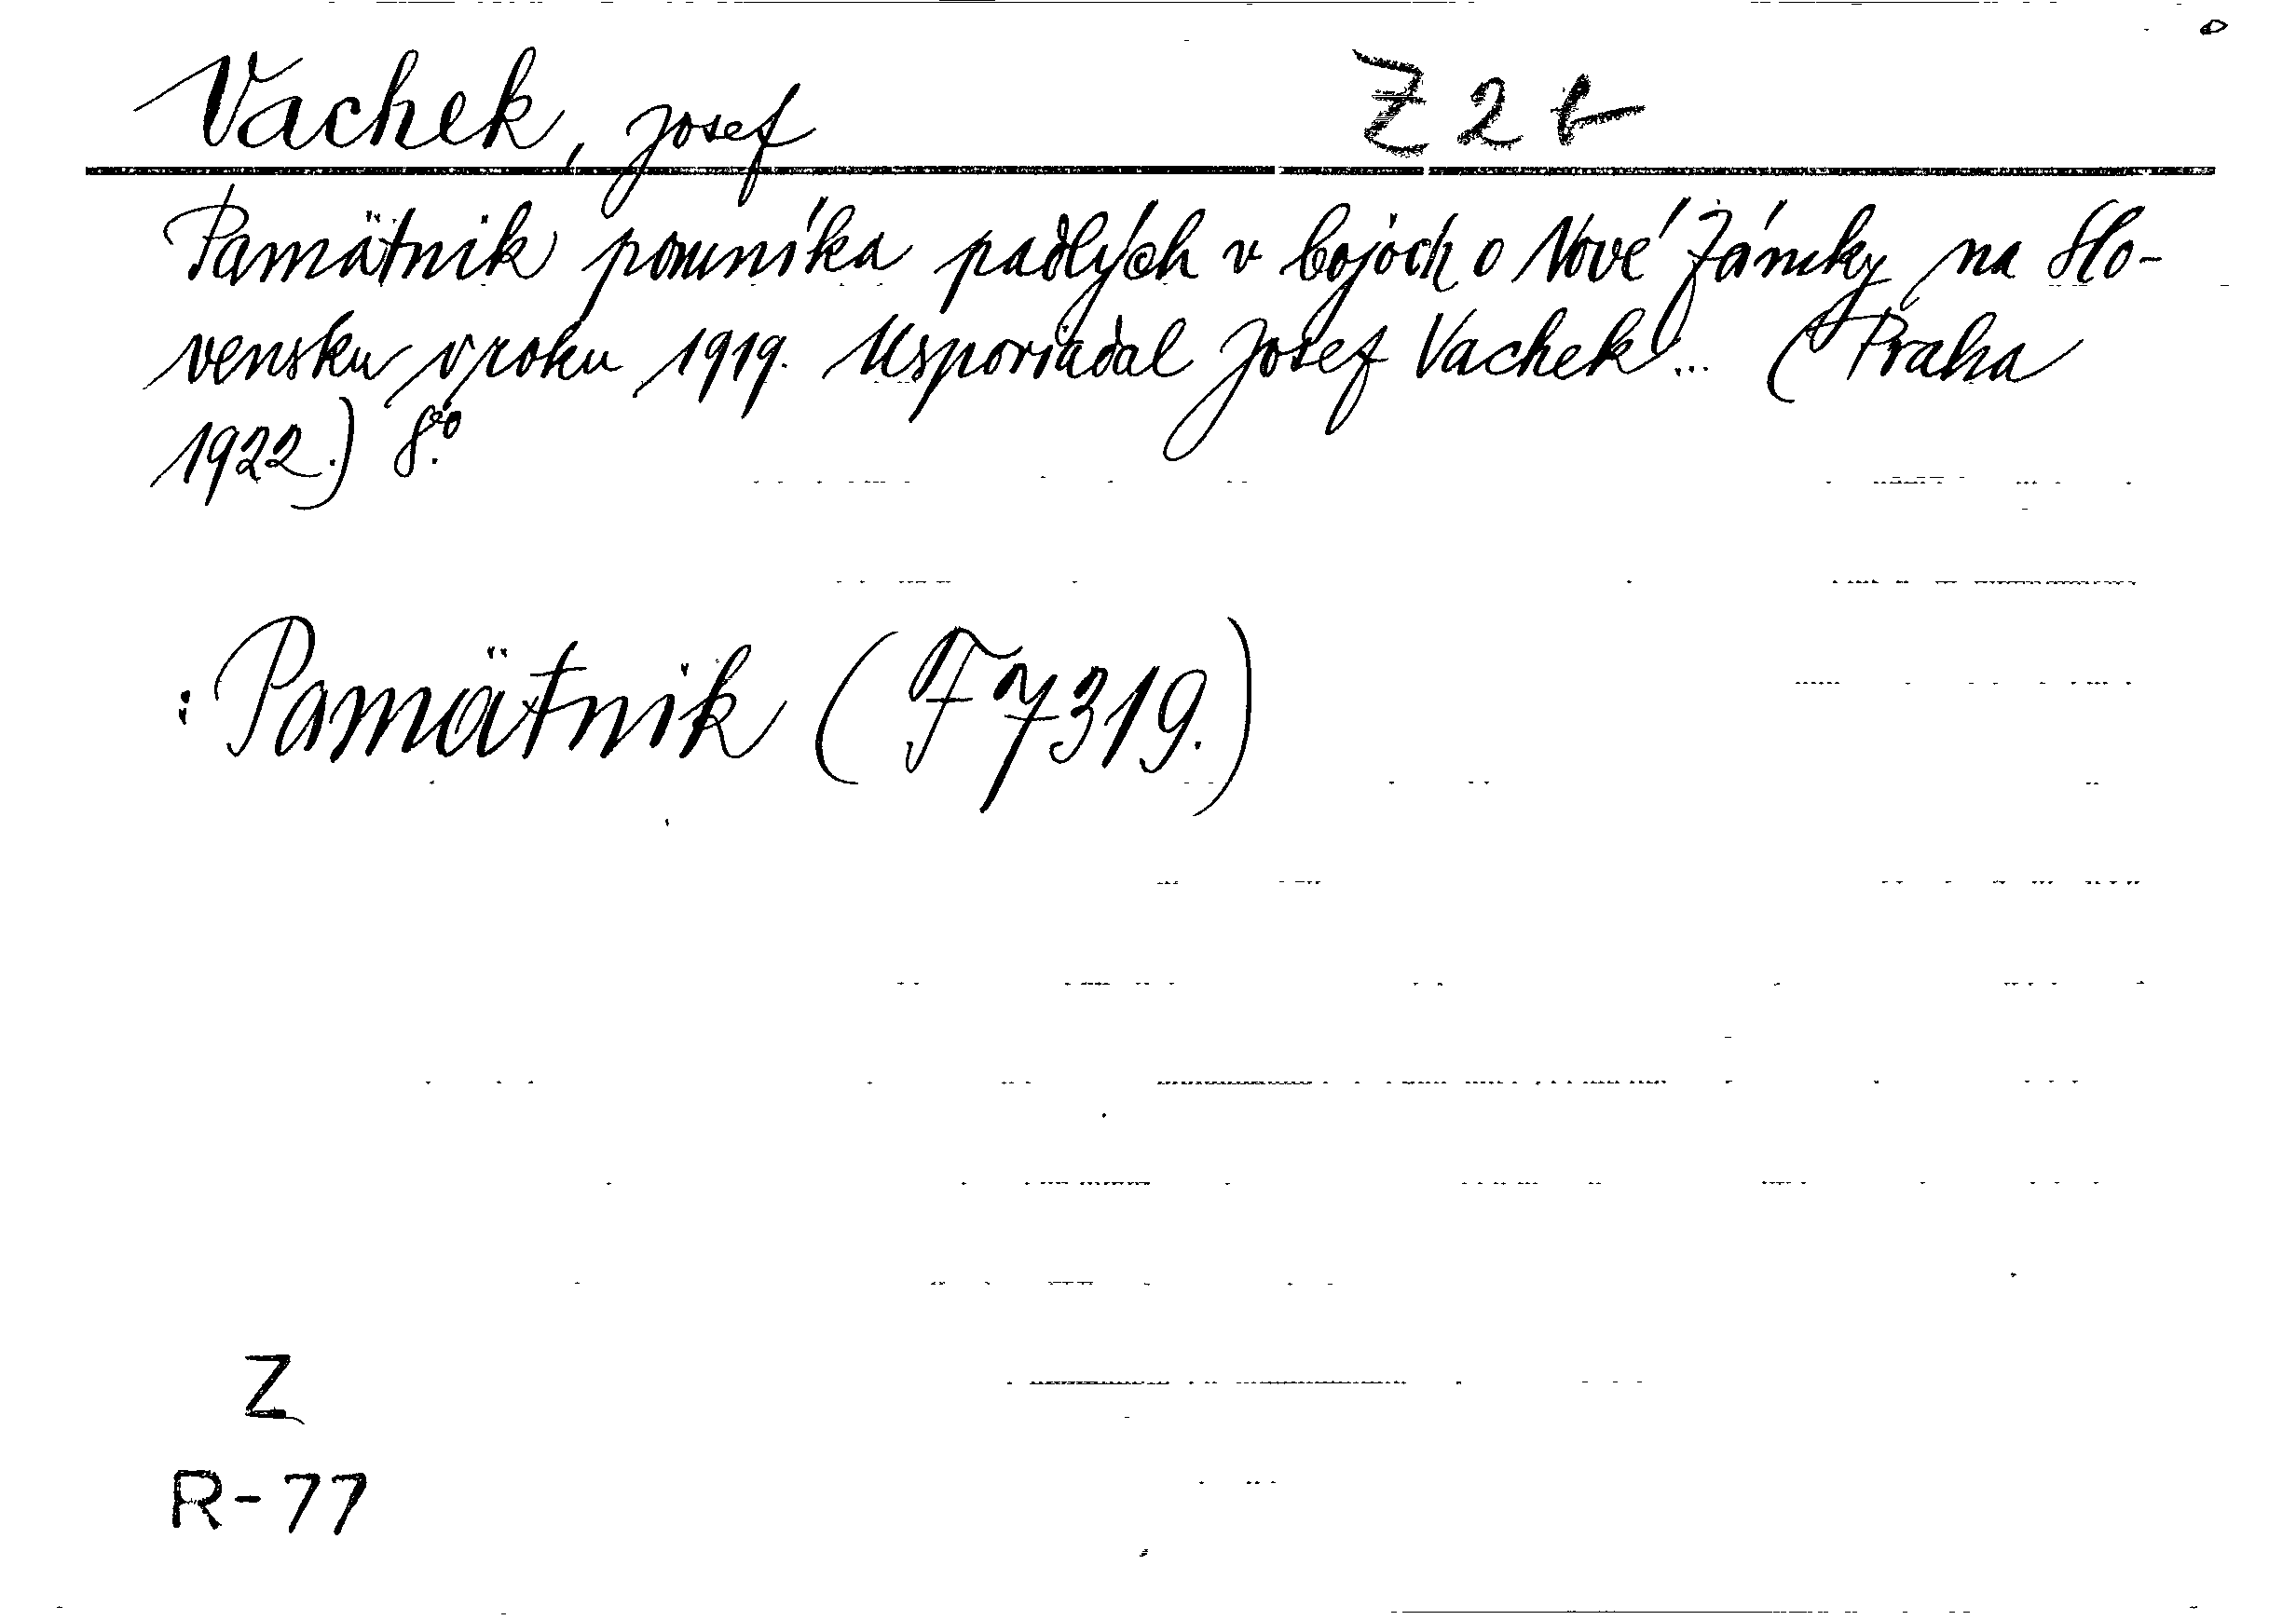 Vachek, Josef Z 2 b
Pamätnik pomníka padlých v bojoch o Nové Zámky na Slo-
vensku v roku 1919. Usporiadal Josef Vachek... (Praha
1922.) 8°
: Pamätnik (F 7319.)
Z
R-77